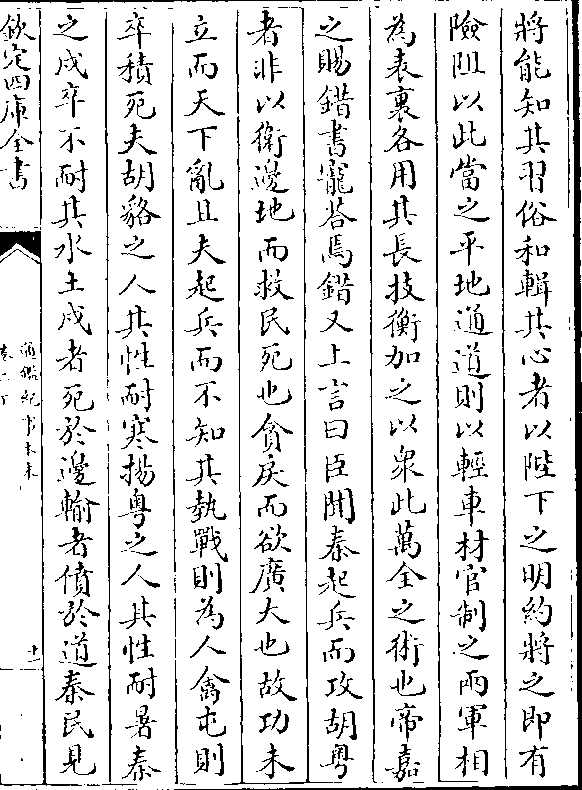 將能知其習俗和輯其心者以陛下之明約將之即有
險阻以此當之平地通道則以輕車材官制之兩軍相
為表裏各用其長技衡加之以衆此萬全之術也帝嘉
之賜錯書寵荅焉錯又上言曰臣聞秦起兵而攻胡粤
者非以衛邊地而救民死也貪戾而欲廣大也故功未
立而天下亂且夫起兵而不知其埶戰則為人禽屯則
卒積死夫胡貉之人其性耐寒揚粤之人其性耐暑秦
之戍卒不耐其水土戍者死於邊輸者僨於道秦民見
欽定四庫全書
通鑑紀事本末